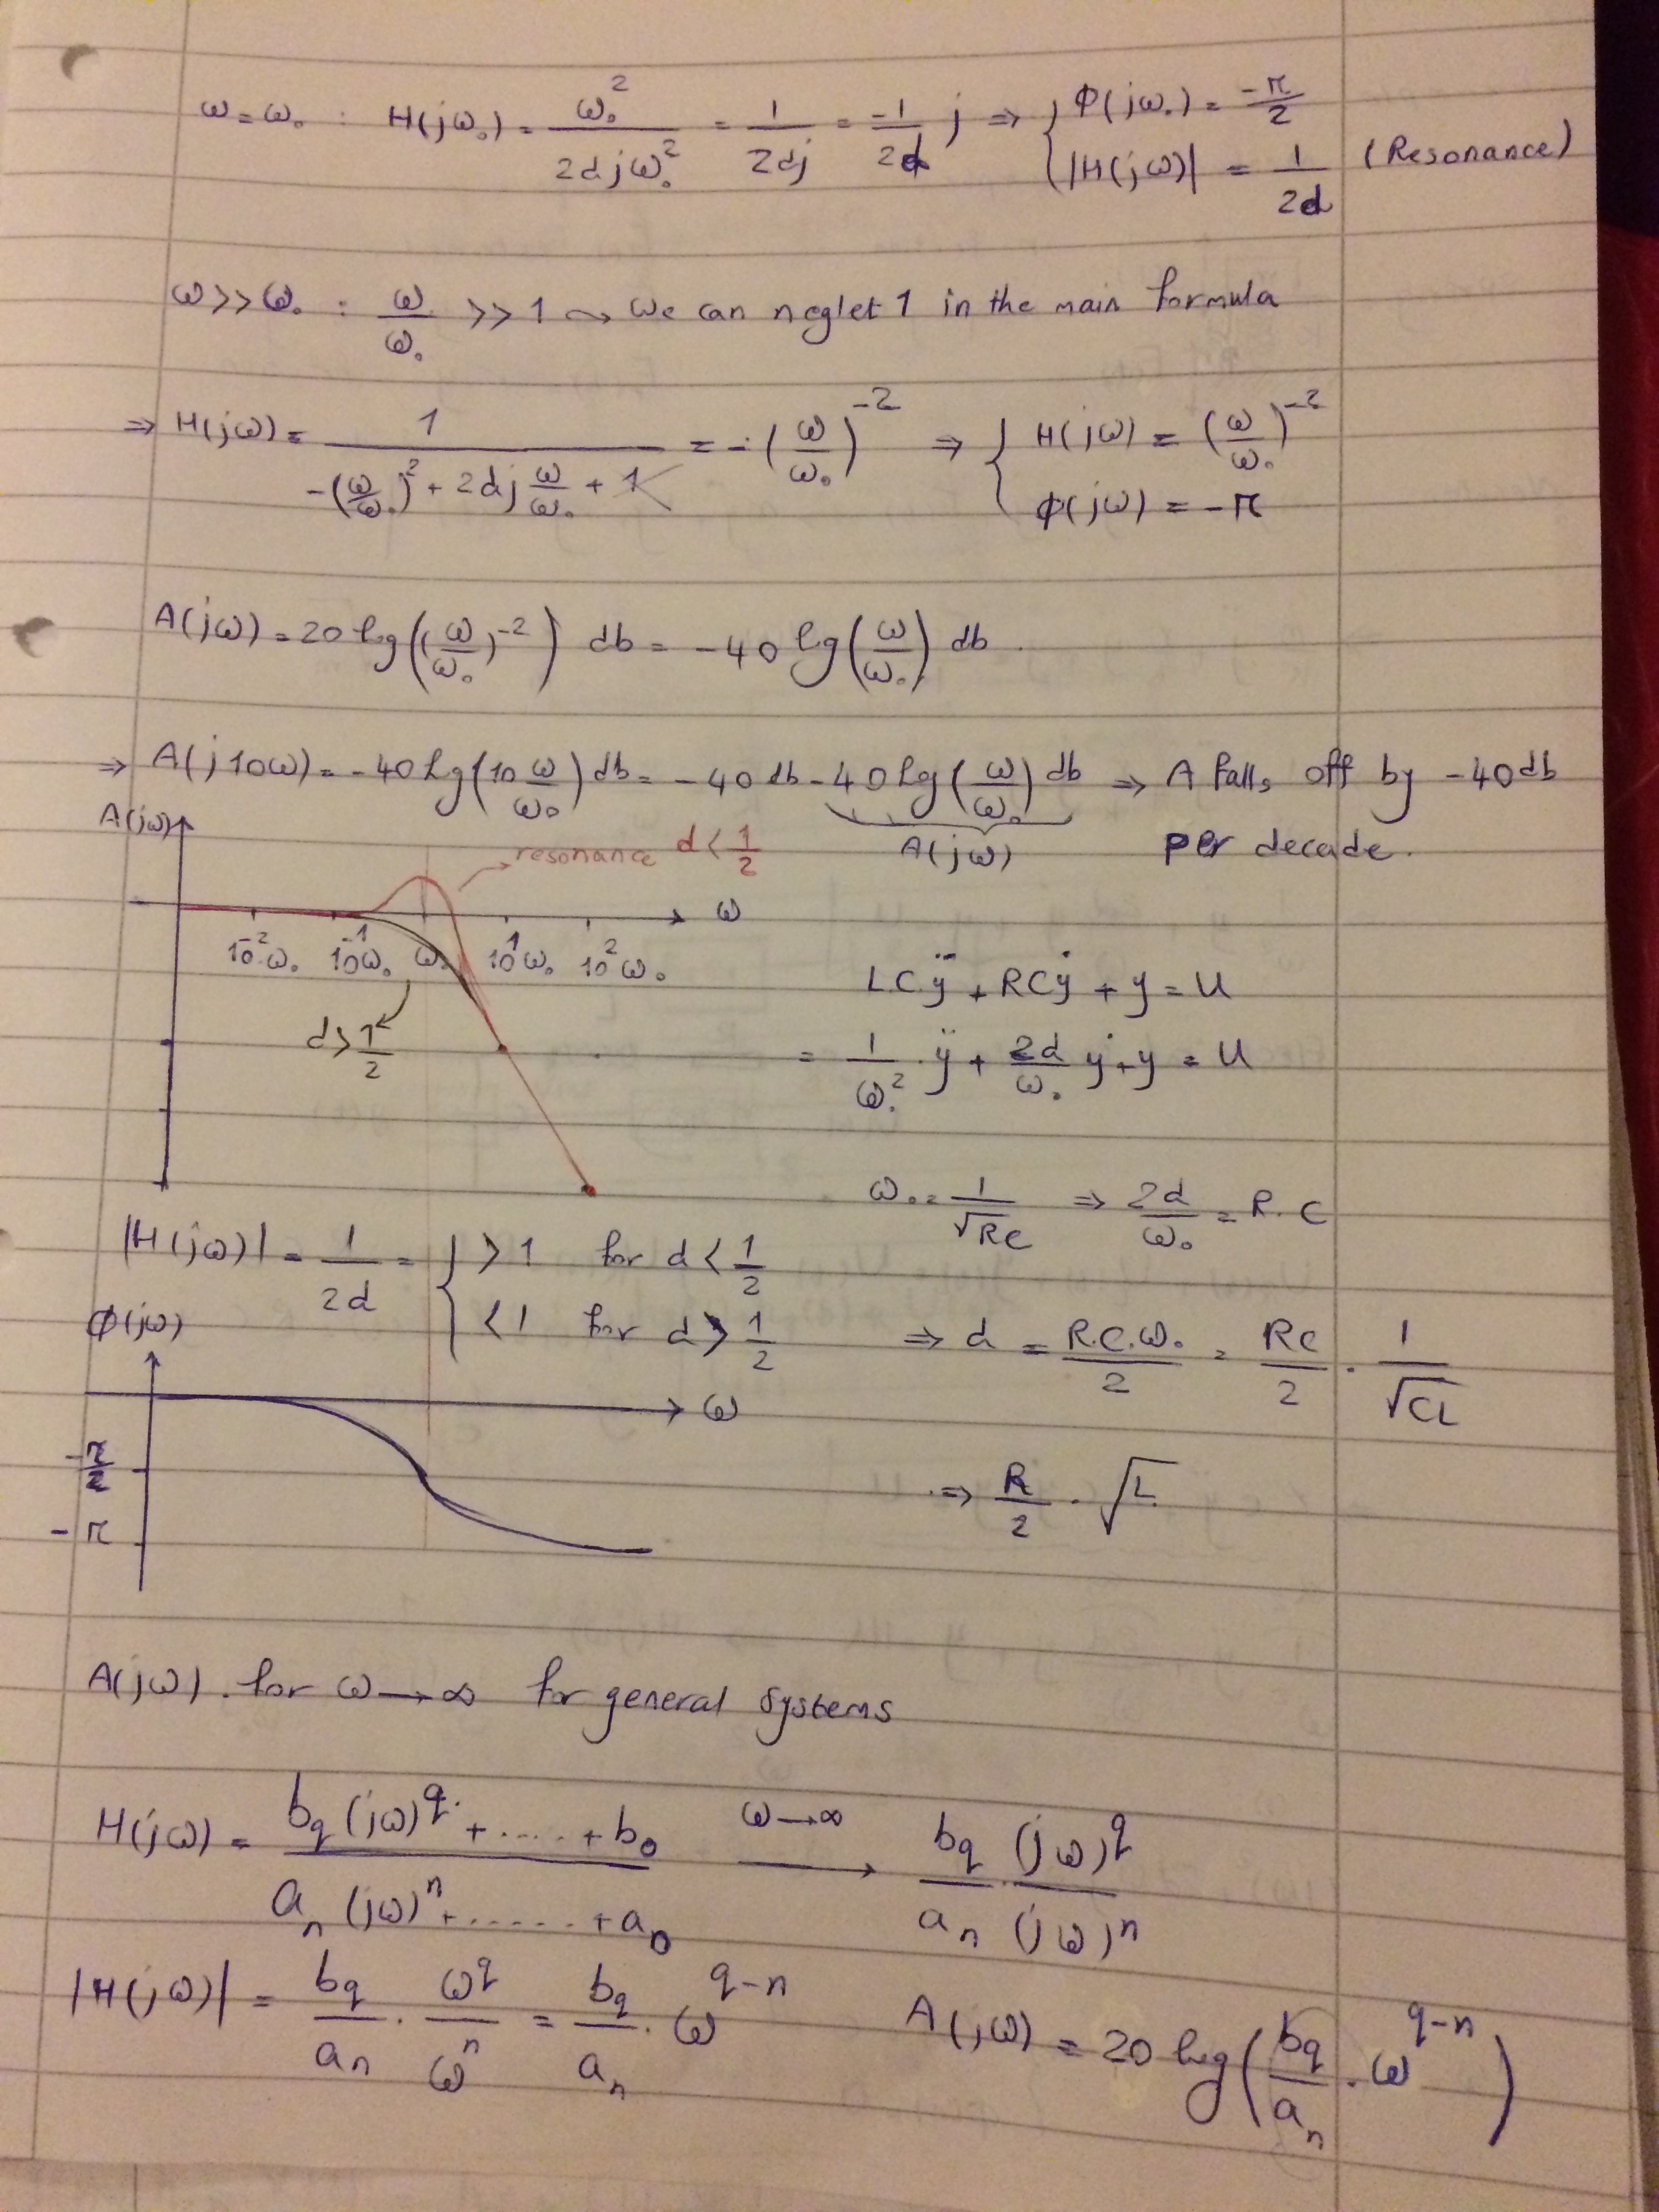 ω = ω₀ : H(jω₀) = ω₀² / 2djω₀² = 1 / 2dj = -1/2d j ⇒ { Φ(jω₀) = -π/2
|H(jω)| = 1/2d (Resonance)
ω >> ω₀ : ω/ω₀ >> 1 ⤳ We can neglet 1 in the main formula
⇒ H(jω) = 1 / (-(ω/ω₀)² + 2dj ω/ω₀ + 1) = -(ω/ω₀)⁻² ⇒ { H(jω) = (ω/ω₀)⁻²
Φ(jω) = -π
A(jω) = 20 log((ω/ω₀)⁻²) db = -40 log(ω/ω₀) db
⇒ A(j10ω) = -40 log(10 ω/ω₀) db = -40 db - 40 log(ω/ω₀) db ⇒ A falls off by -40 db
A(jω)
per decade.
A(jω)
resonance d < 1/2
ω
10⁻²ω₀ 10⁻¹ω₀ ω₀ 10¹ω₀ 10²ω₀
d > 1/2
LCÿ + RCẏ + y = U
= 1/ω₀² · ÿ + 2d/ω₀ ẏ + y = U
ω₀ = 1/√RC ⇒ 2d/ω₀ = R.C
|H(jω)| = 1/2d = { > 1 for d < 1/2
< 1 for d > 1/2
⇒ d = R.C.ω₀/2 = RC/2 · 1/√CL
Φ(jω)
ω
-π/2
-π
⇒ R/2 · √L
A(jω) for ω → ∞ for general systems
H(jω) = (b_q (jω)^q + ..... + b₀) / (a_n (jω)^n + ...... + a₀) ω→∞ ⟶ b_q/a_n · (jω)^q/(jω)^n
|H(jω)| = b_q/a_n · ω^q/ω^n = b_q/a_n · ω^(q-n) A(jω) = 20 log(b_q/a_n · ω^(q-n))